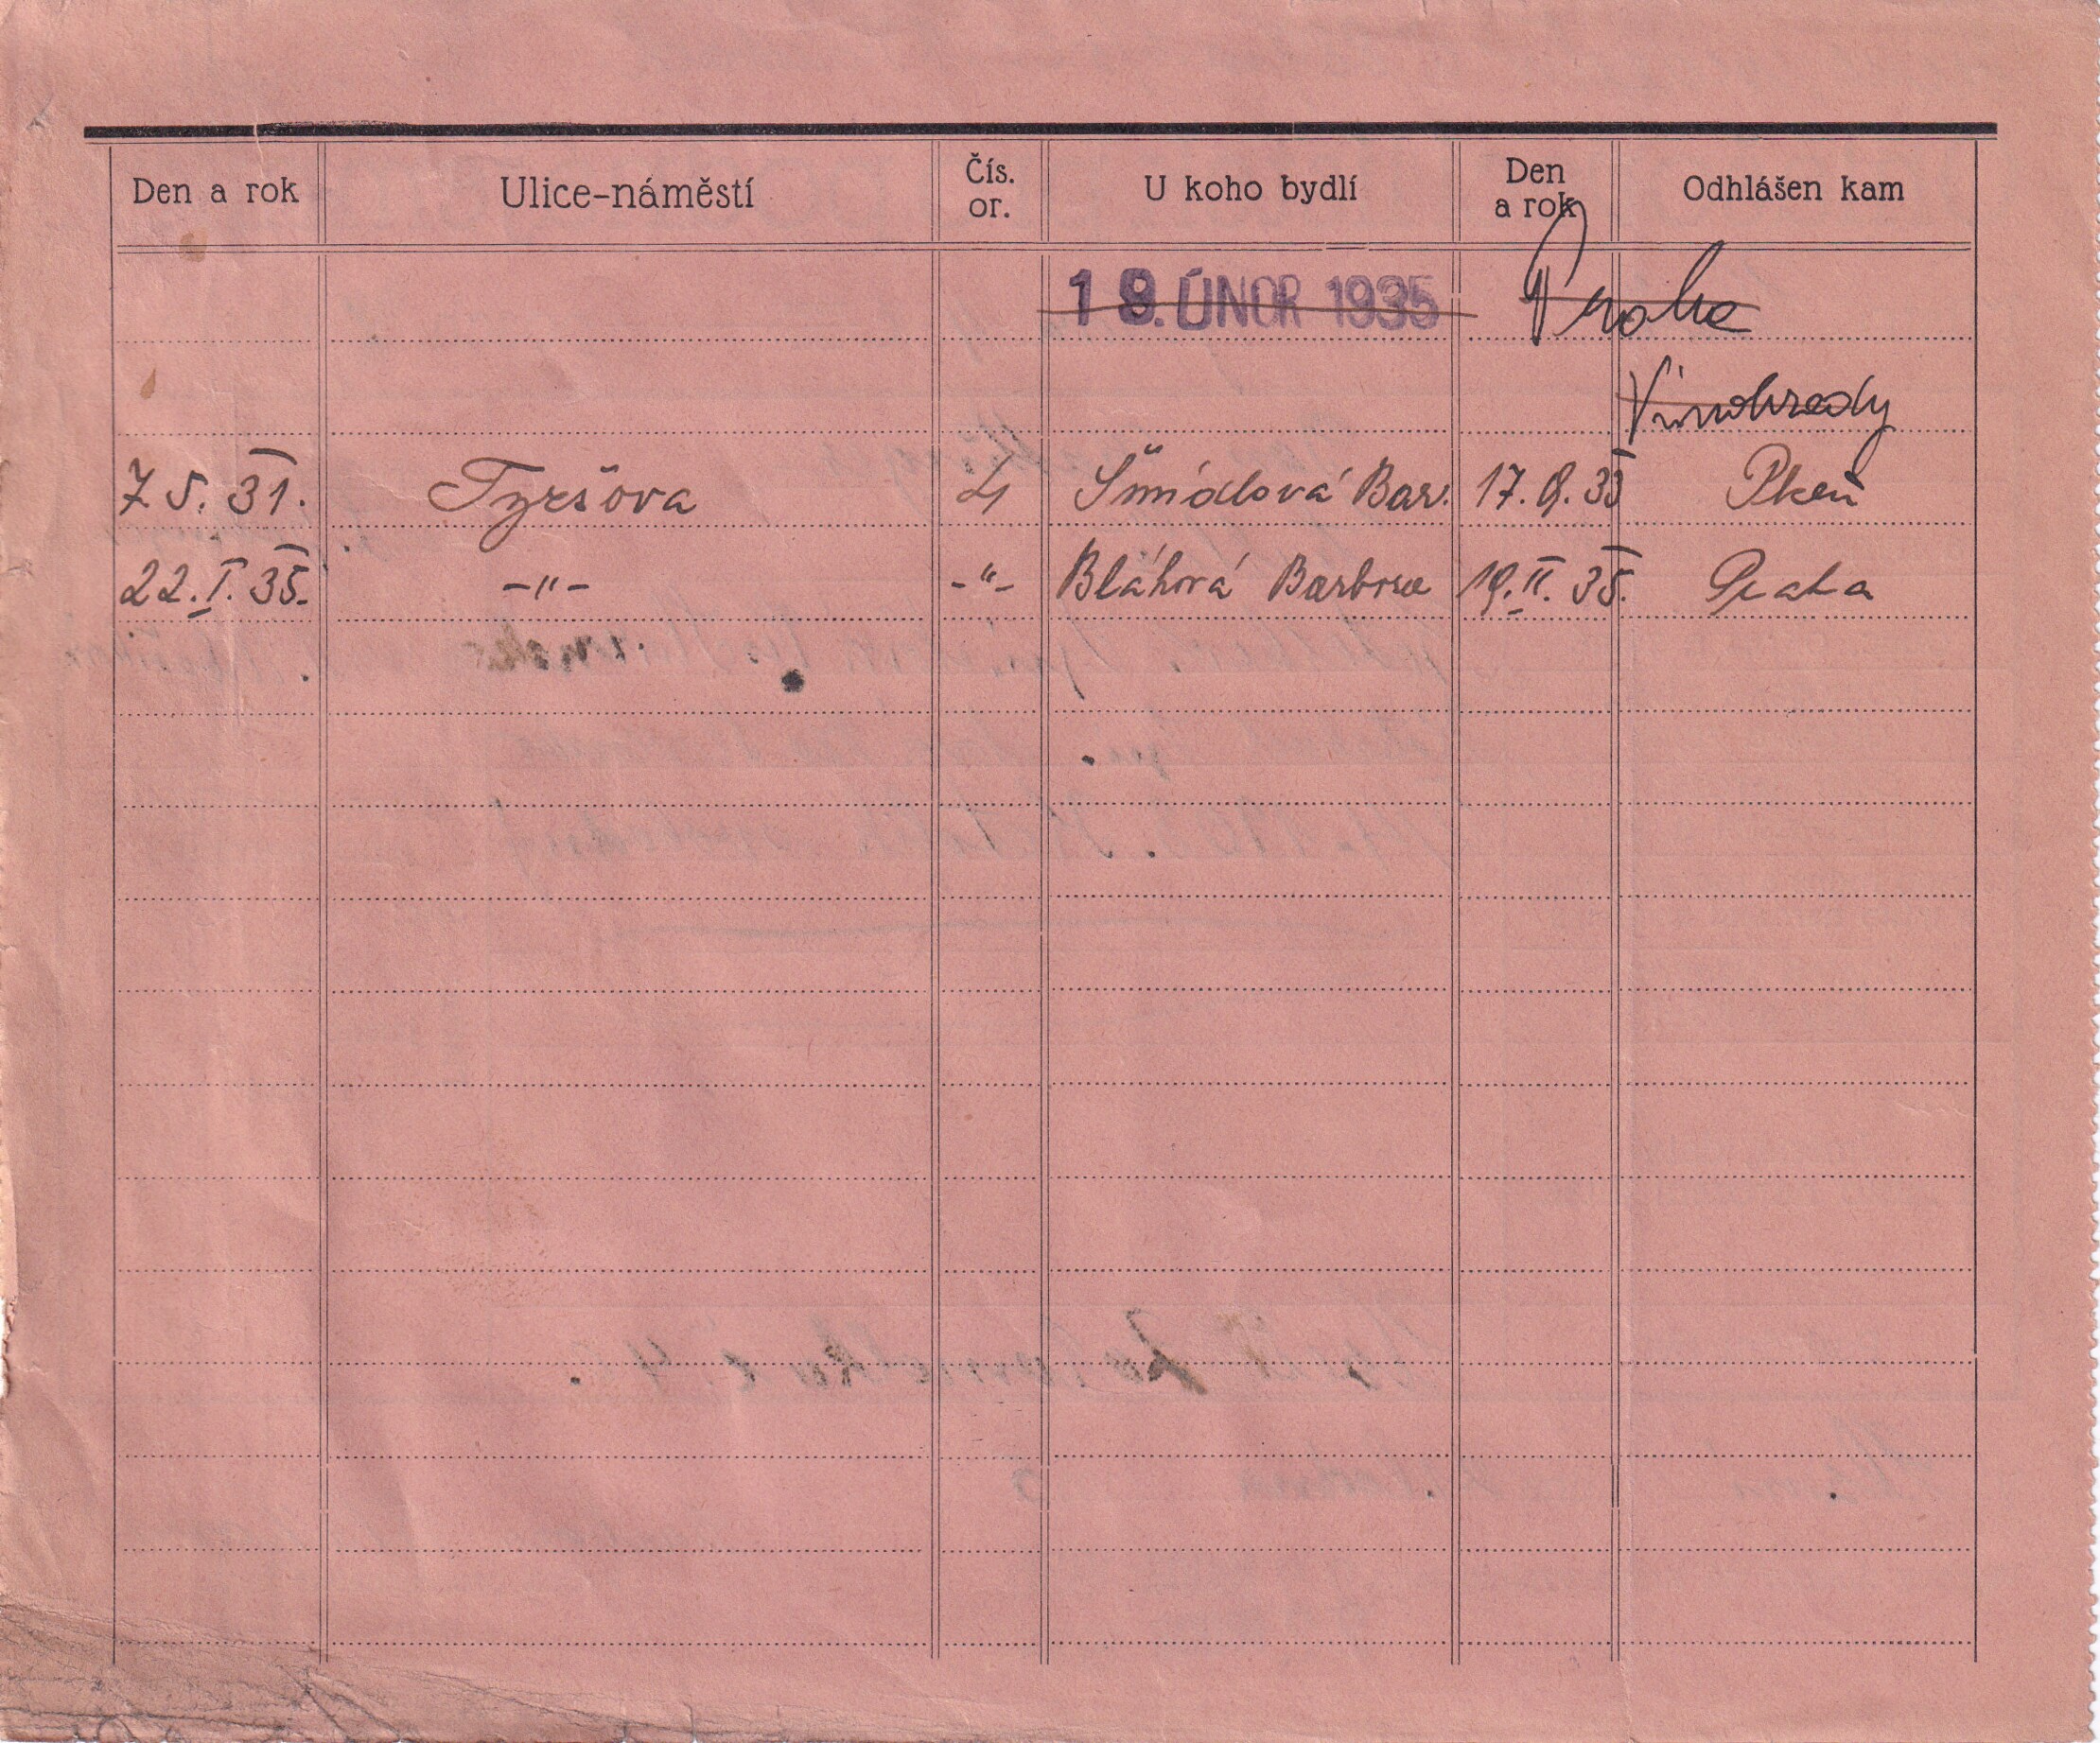 Den a rok Ulice-náměstí Čís. or. U koho bydlí Den a rok Odhlášen kam
19. ÚNOR 1935 Praha
Vinohrady
7 5. 31. Tyršova 4 Šmídlová Bar. 17. 9. 33 Plzeň
22. I. 35. -"- -"- Bláhová Barbora 19. II. 35. Praha